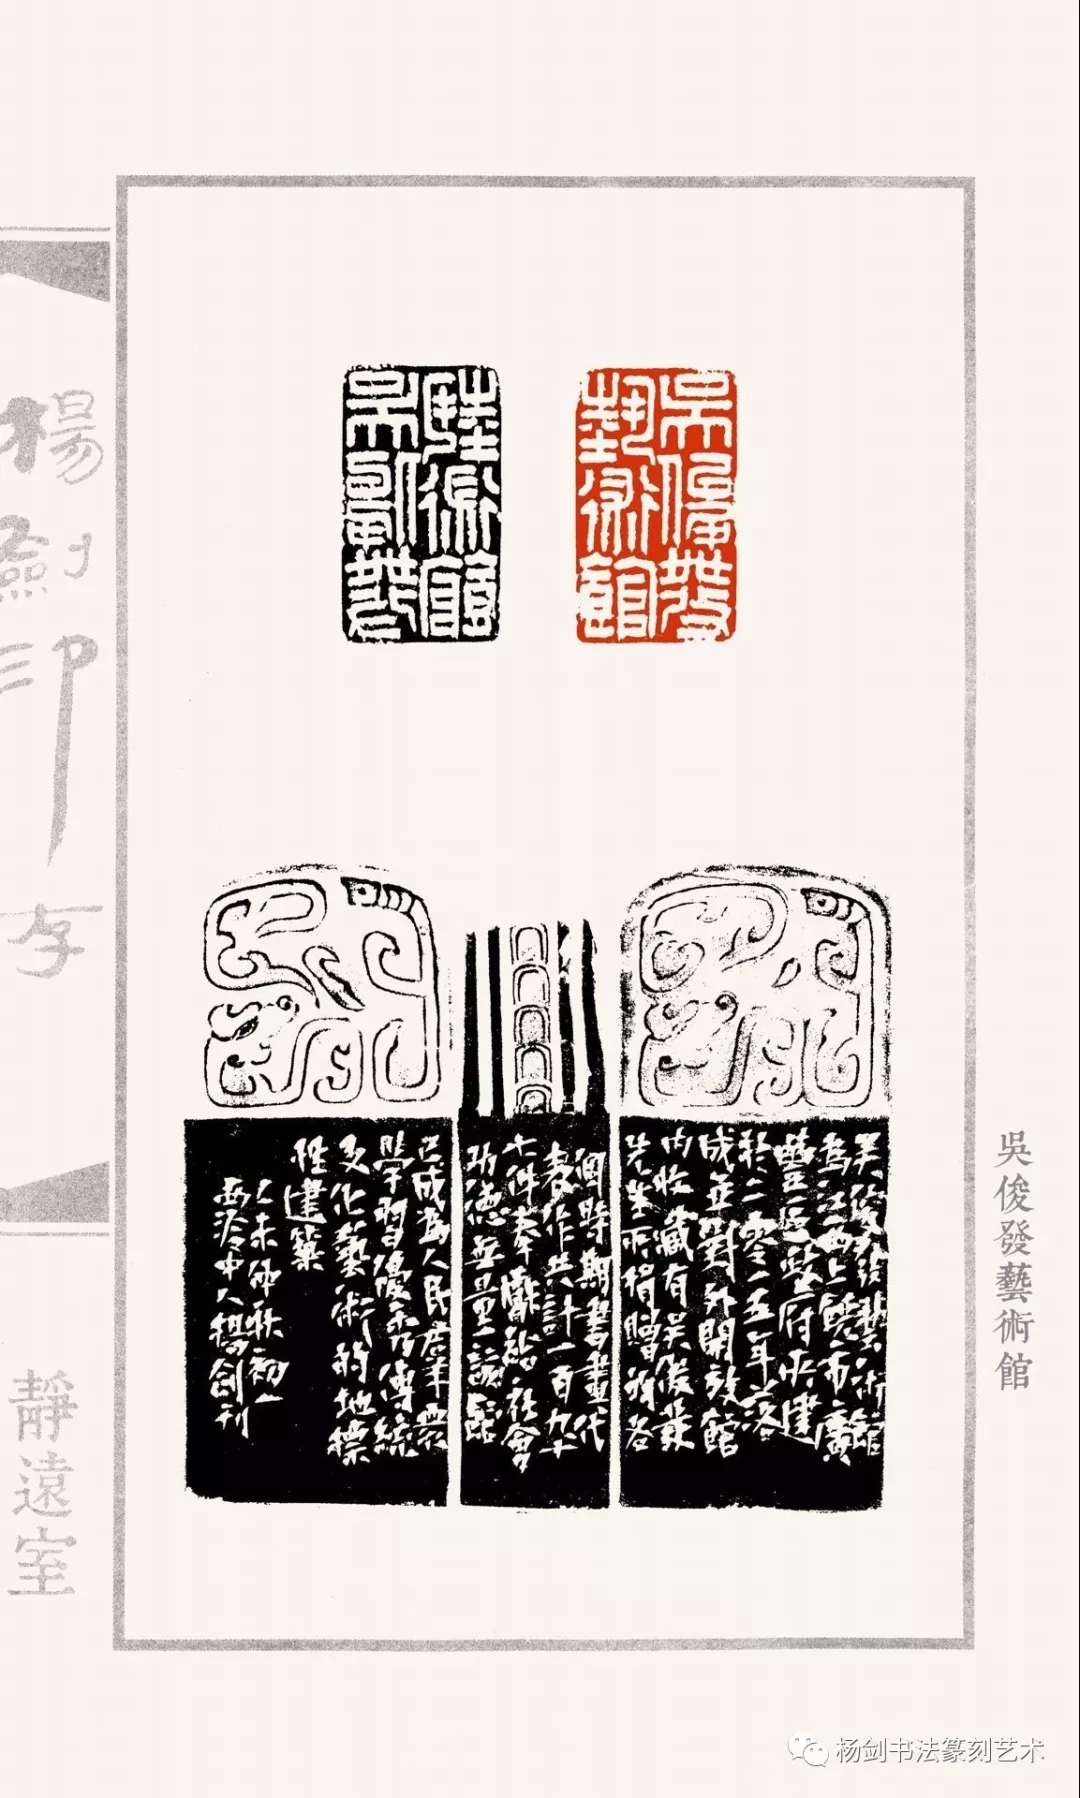 吳俊發
藝術館
吳俊發藝術館
為江西上饒市廣
豐區政府所建
於二零一五年落
成並對外開放館
內收藏有吳俊發
先生所捐贈的各
個時期書畫代
表作共計一百九十
七件奉獻給社會
功德無量該館
已成為人民群眾
學習優秀傳統
文化藝術的地標
性建築
乙未仲秋初一
西泠中人楊劍刊
吳俊發藝術館
楊劍印存
靜遠室
杨剑书法篆刻艺术